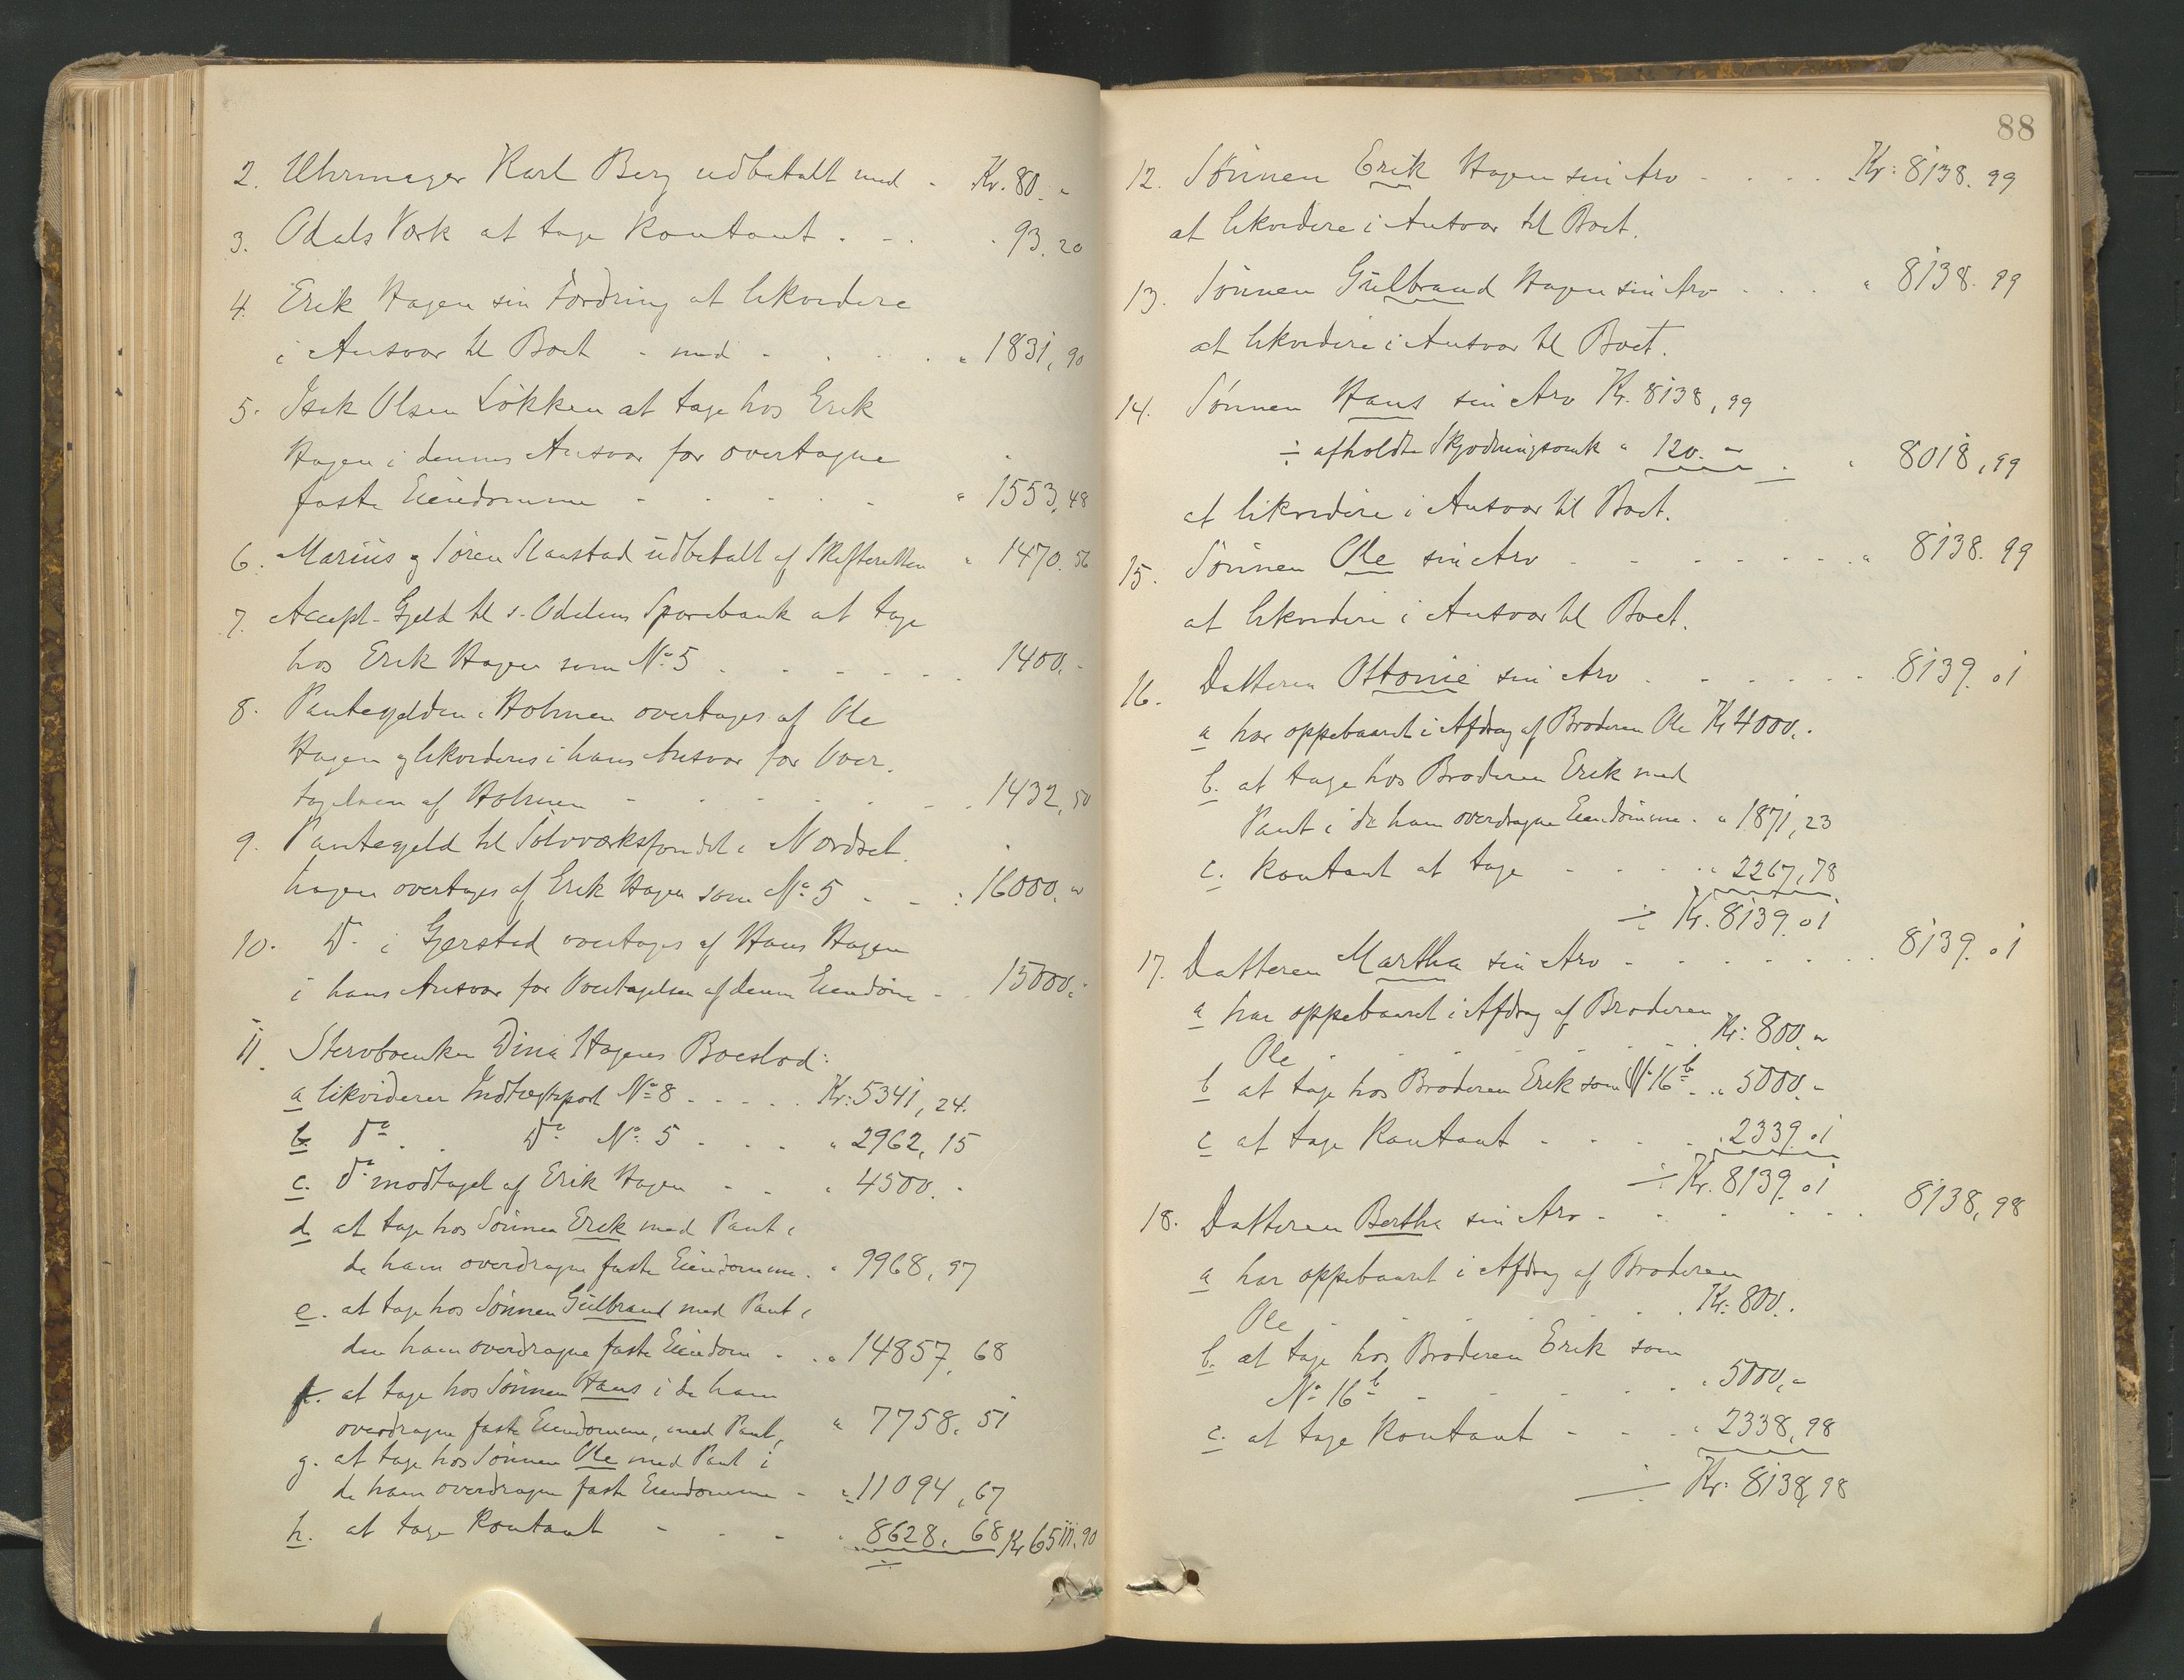 2. Uhrmager Karl Berg udbetalt med - Kr. 80. "
3. Odals Værk at tage kontant . - . . 93.20
4. Erik Hagen sin Fordring at likvidere
i Ansvar til Boet - med - . . . . " 1831,90
5. Isak Olsen Løkken at tage hos Erik
Hagen i dennes Ansvar for overtagne
faste Eiendomme - - - - - " 1553,48
6. Marius & Søren Slaastad udbetalt af Skifteretten " 1470.56
7. Accept-Gjeld til s. Odalens Sparebank at tage
hos Erik Hagen som No 5 . . . . . . 1400.-
8. Pantegjelden i Holmen overtages af Ole
Hagen & likvideres i hans Ansvar for Over-
tagelsen af Holmen - - - - - - . 1432,50
9. Pantegjeld til Sølvværksfondet i Nordset-
hagen overtages af Erik Hagen som No 5 - - : 16000. "
10. Do i Gjerstad overtages af Hans Hagen
i hans Ansvar for Overtagelsen af denne Eiendom - . 15000.-
11. Stervboenken Dina Hagens Boeslod:
a likviderer Indtægtspost No 8 - - - - . Kr: 5341,24.
b. do . . Do No 5 - - - . " 2962,15
c. do modtaget af Erik Hagen - - " 4500.-
d at tage hos Sønnen Erik med Pant i
de ham overdragne faste Eiendomme. " 9968,97
e. at tage hos Sønnen Gulbrand med Pant i
den ham overdragne faste Eiendom - . " 14857,68
f. at tage hos Sønnen Hans i de ham
overdragne faste Eiendomme, med Pant, " 7758.51
g. at tage hos Sønnen Ole med Pant i
de ham overdragne faste Eiendomme - " 11094,67
h. at tage kontant - - - " 8628.68 Kr 65111.90
88
12. Sønnen Erik Hagen sin Arv - . . . Kr: 8138.99
at likvidere i Ansvar til Boet.
13. Sønnen Gulbrand Hagen sin Arv . . . " 8138.99
at likvidere i Ansvar til Boet.
14. Sønnen Hans sin Arv Kr. 8138,99
÷ afholdte Skjødningsomk " 120.- . " 8018,99
at likvidere i Ansvar til Boet.
15. Sønnen Ole sin Arv - - - - - . . " 8138.99
at likvidere i Ansvar til Boet.
16. Datteren Ottonie sin Arv . - - . . . . 8139.01
a har oppebaaret i Afdrag af Broderen Ole Kr 4000..
b. at tage hos Broderen Erik med
Pant i de ham overdragne Eiendomme. " 1871,23
c. kontant at tage . - - . " 2267,78
÷ Kr. 8139.01
17. Datteren Martha sin Arv - . . . . . . 8139.01
a har oppebaaret i Afdrag af Broderen
Ole . . . . . . . Kr: 800. "
b at tage hos Broderen Erik som No 16b . " 5000.-
c at tage kontant - - . . . 2339.01
÷ Kr. 8139.01
18. Datteren Bertha sin Arv - . . . . . 8138,98
a har oppebaaret i Afdrag af Broderen
Ole . . . . . . Kr: 800..
b. at tage hos Broderen Erik som
No 16b - - - - . . " 5000,-
c. at tage kontant - - . " 2338,98
÷ Kr: 8138,98